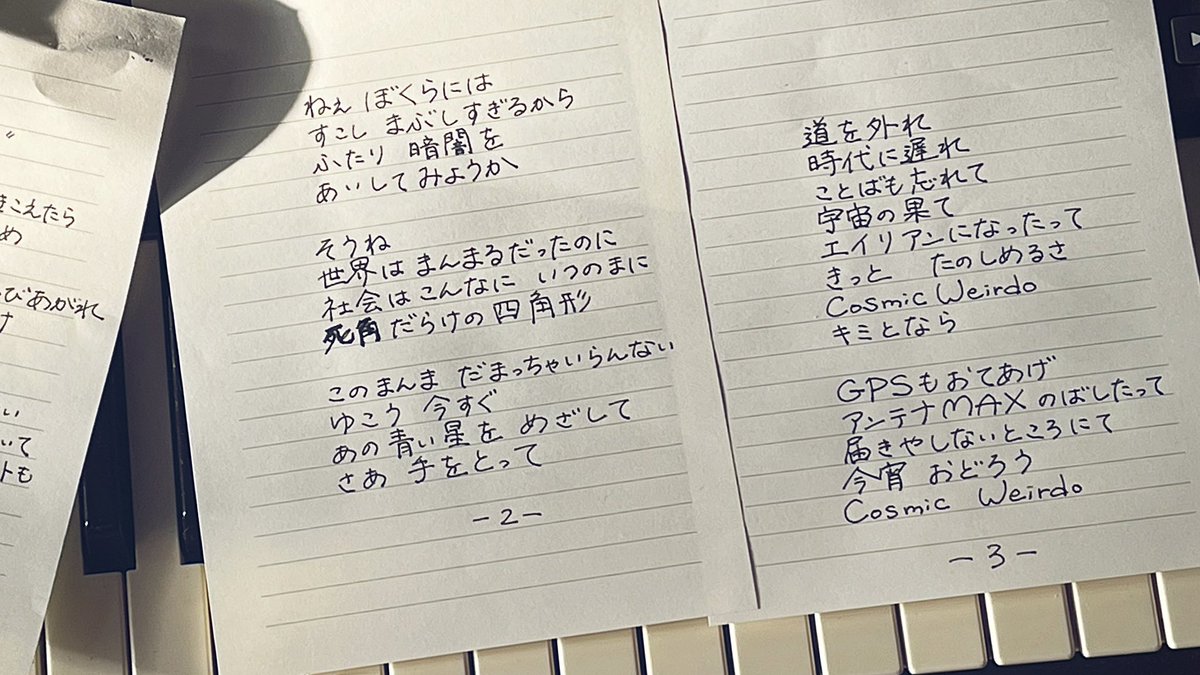 きこえたら
め
びあがれ
け
い
いて
トも
ねぇ ぼくらには
すこし まぶしすぎるから
ふたり 暗闇を
あいしてみようか
そうね
世界は まんまるだったのに
社会は こんなに いつのまに
死角だらけの 四角形
このまんま だまっちゃいらんない
ゆこう 今すぐ
あの青い星を めざして
さあ 手をとって
-2-
道を外れ
時代に遅れ
ことばも忘れて
宇宙の果て
エイリアンになったって
きっと たのしめるさ
Cosmic Weirdo
キミとなら
GPSもおてあげ
アンテナMAXのばしたって
届きやしないところにて
今宵 おどろう
Cosmic Weirdo
-3-